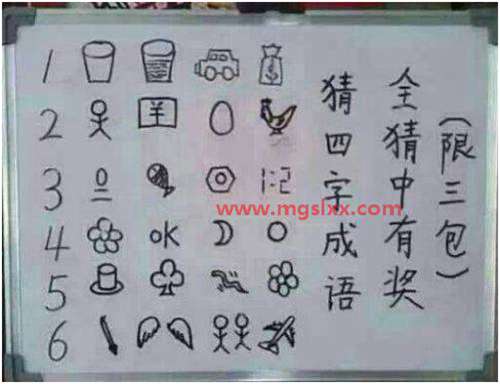 （限三包）
全猜中有奖
猜四字成语
1
2 羊
3 1:2
4 OK
5
6
www.mgslxx.com